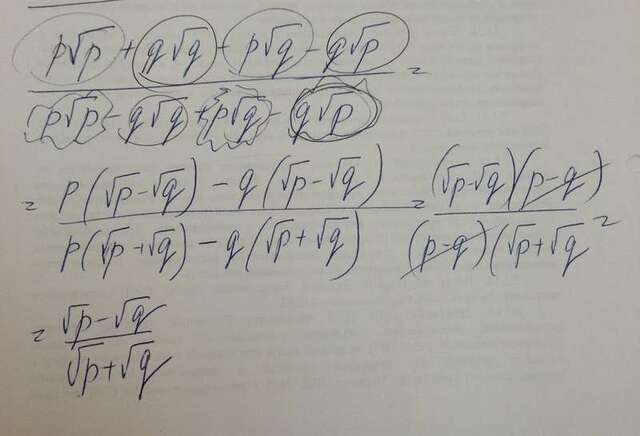 p√p + q√q - p√q - q√p
p√p - q√q + p√q - q√p =
= p(√p - √q) - q(√p - √q) = (√p - √q)(p - q)
p(√p + √q) - q(√p + √q) (p - q)(√p + √q =
= √p - √q
√p + √q